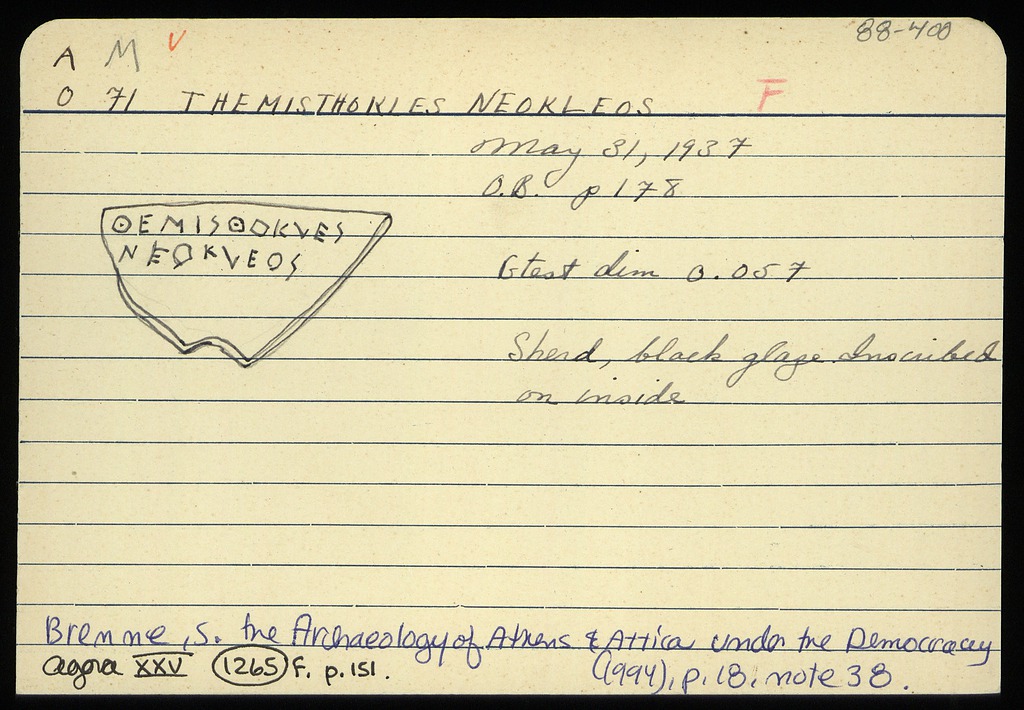 88-400
A M V
O 71 THEMISTHOKLES NEOKLEOS F
May 31, 1937
O.B. p 178
ΘEMISΘOKVES
NEOKVEOS
Gtest dim 0.057
Sherd, black glaze. Inscribed
on inside
Bremme, S. the Archaeology of Athens & Attica under the Democracy
(1994), p. 18, note 38.
Agora XXV 1265 F. p. 151.